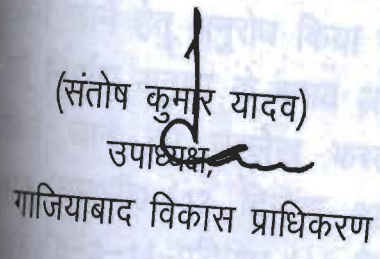 (संतोष कुमार यादव)
उपाध्यक्ष,
गाजियाबाद विकास प्राधिकरण